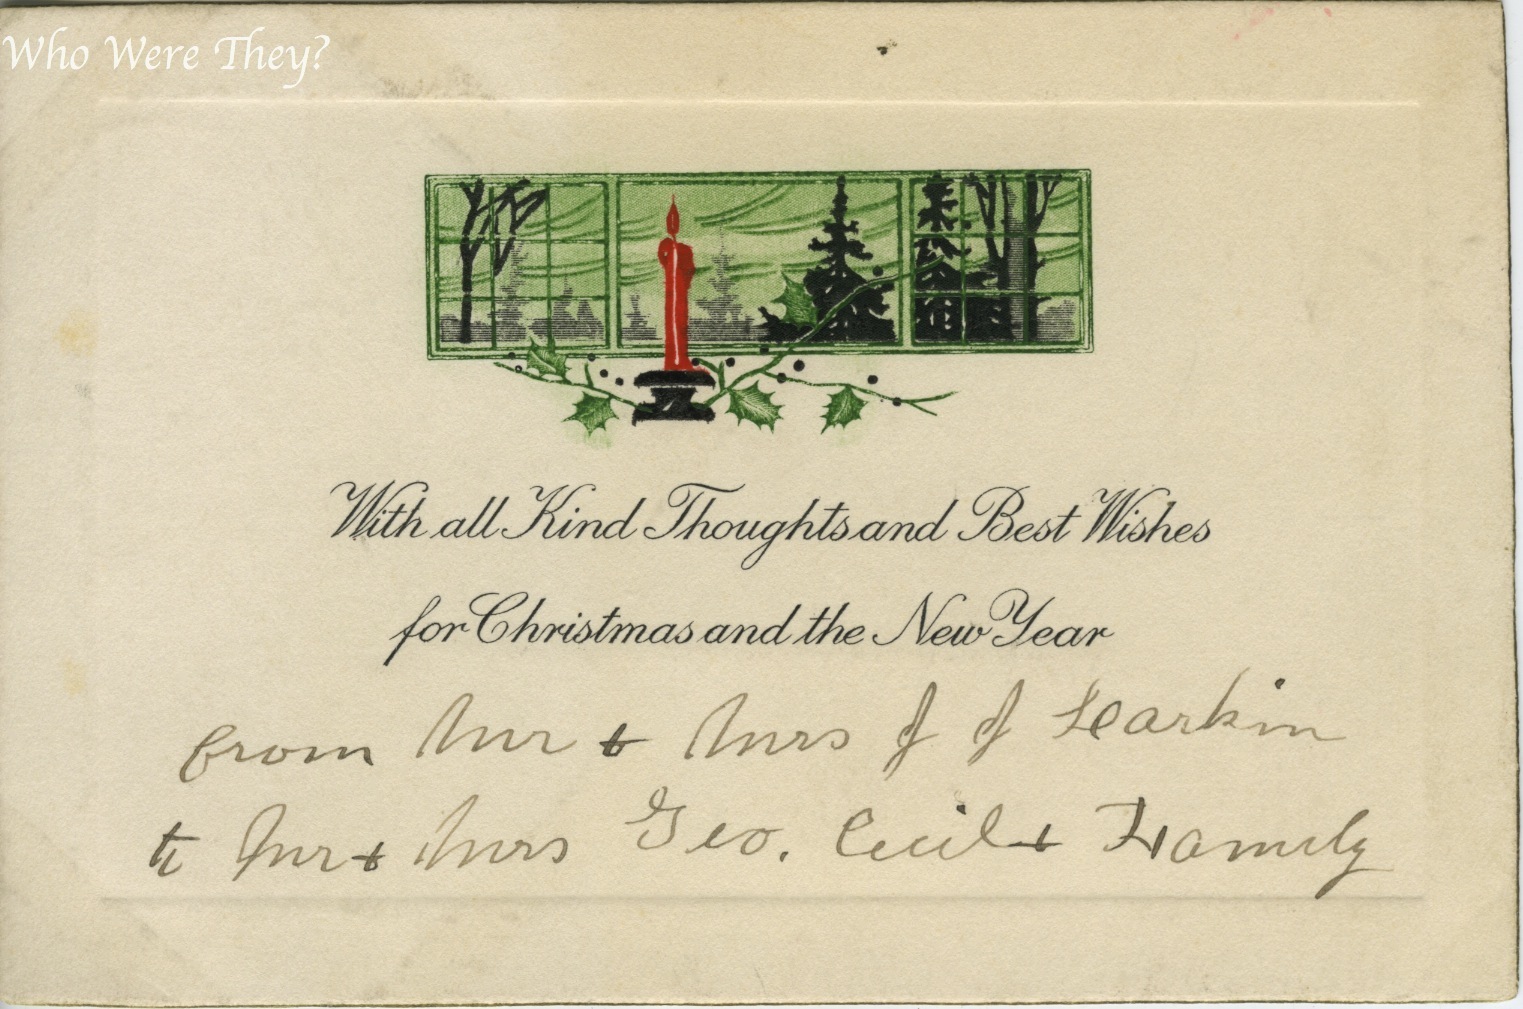 Who Were They?
With all Kind Thoughts and Best Wishes
for Christmas and the New Year
from Mr & Mrs J J Larkin
to Mr & Mrs Geo. Cecil & Family